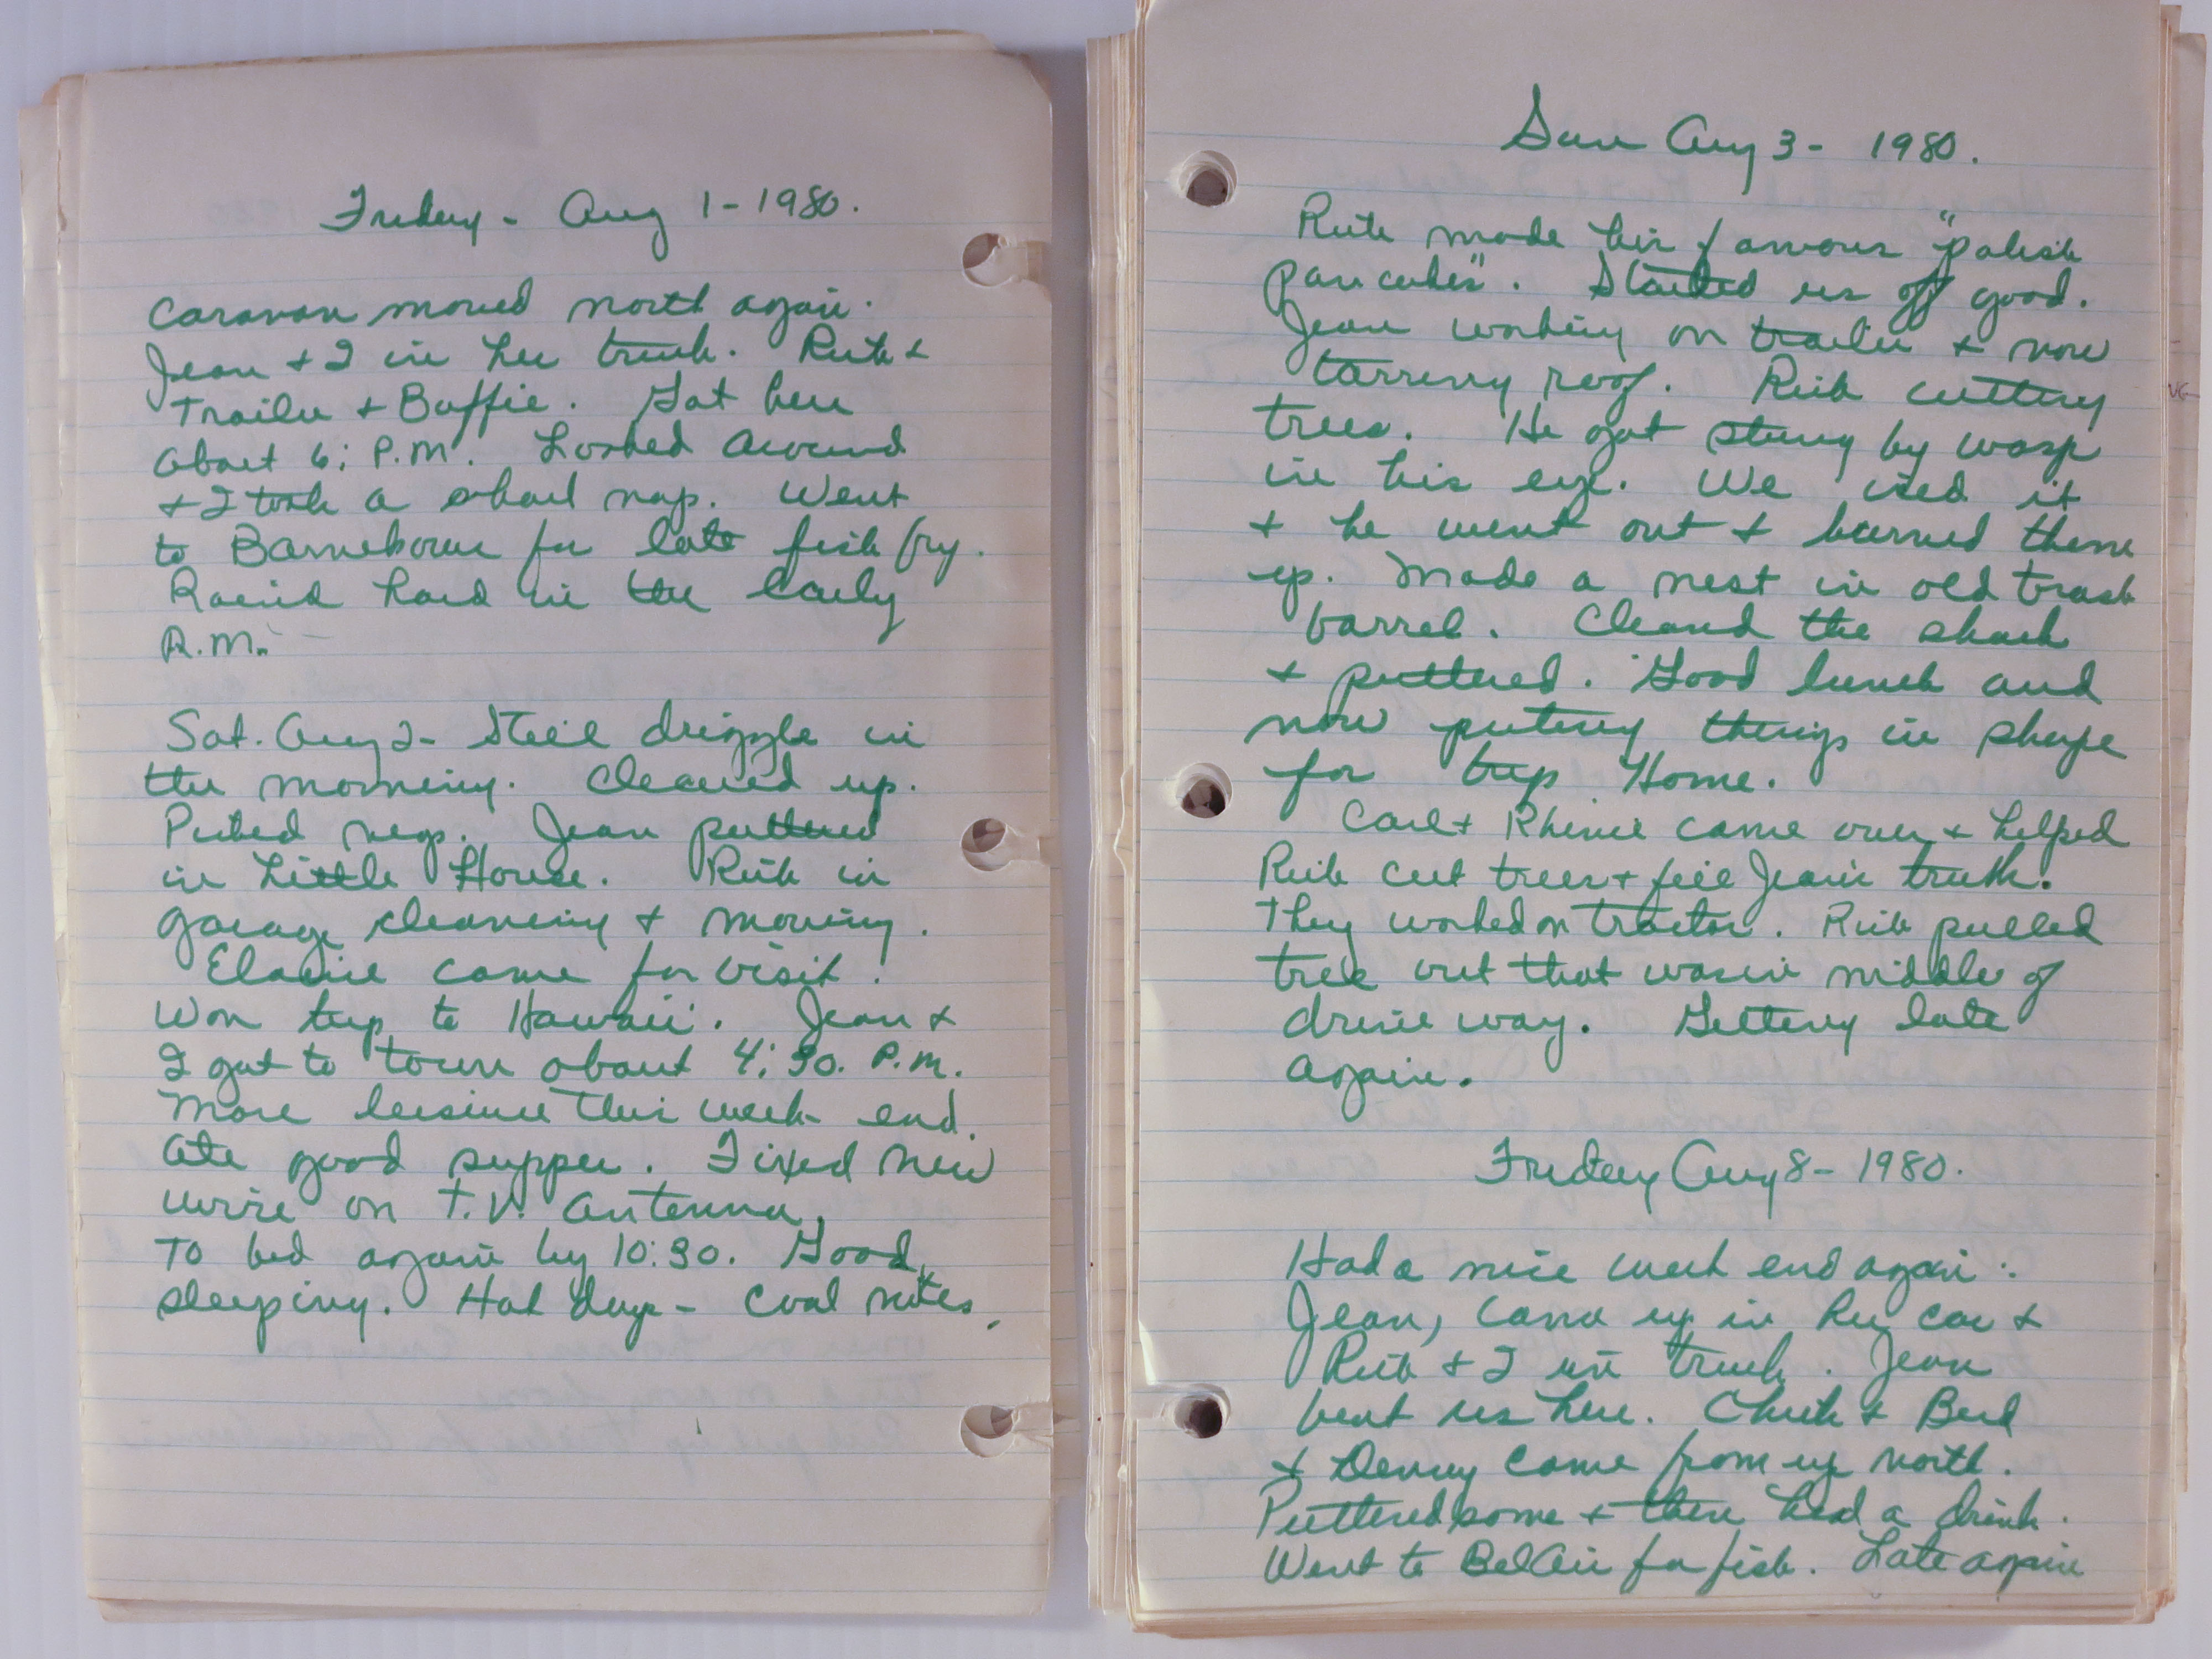 Friday - Aug 1 - 1980.
Caravan moved north again.
Jean + I in her truck. Rub +
Trailer + Buffie. Got here
about 6: P.M. Looked around
+ I took a short nap. Went
to for late fish fry.
Rained hard in the early
A.M.
Sat. Aug 2 - Still drizzle in
the morning. Cleared up.
Picked vegs. Jean puttered
in Little House. Rub in
garage cleaning + moving.
Elaine came for visit.
Won trip to Hawaii. Jean +
I got to town about 4:30. P.M.
More leisure this week - end.
Ate good supper. Fixed new
wire on T.V. antenna,
To bed again by 10:30. Good
sleeping. Hot days - Cool nites.
Sun Aug 3 - 1980.
Rub made his famous "polish
pancakes". Started us off good.
Jean working on trailer + now
tarreny roof. Rub cutting
trees. He got stung by wasp
in his eye. We iced it
+ he went out + burned them
up. Made a nest in old trash
barrel. Cleand the shack
+ puttered. Good lunch and
now puting things in shape
for trip Home.
Carl + came over + helped
Rub cut trees + fill Jean's truck.
They worked on tractor. Rub pulled
tree out that was in middle of
drive way. Getting late
again.
Friday Aug 8 - 1980.
Had a nice week end again.
Jean, came up in her car +
Rub + I in truck. Jean
beat us here. Chuck + Bud
+ Denny came from up north.
Puttered some + then had a drink.
Went to BelAir for fish. Late again